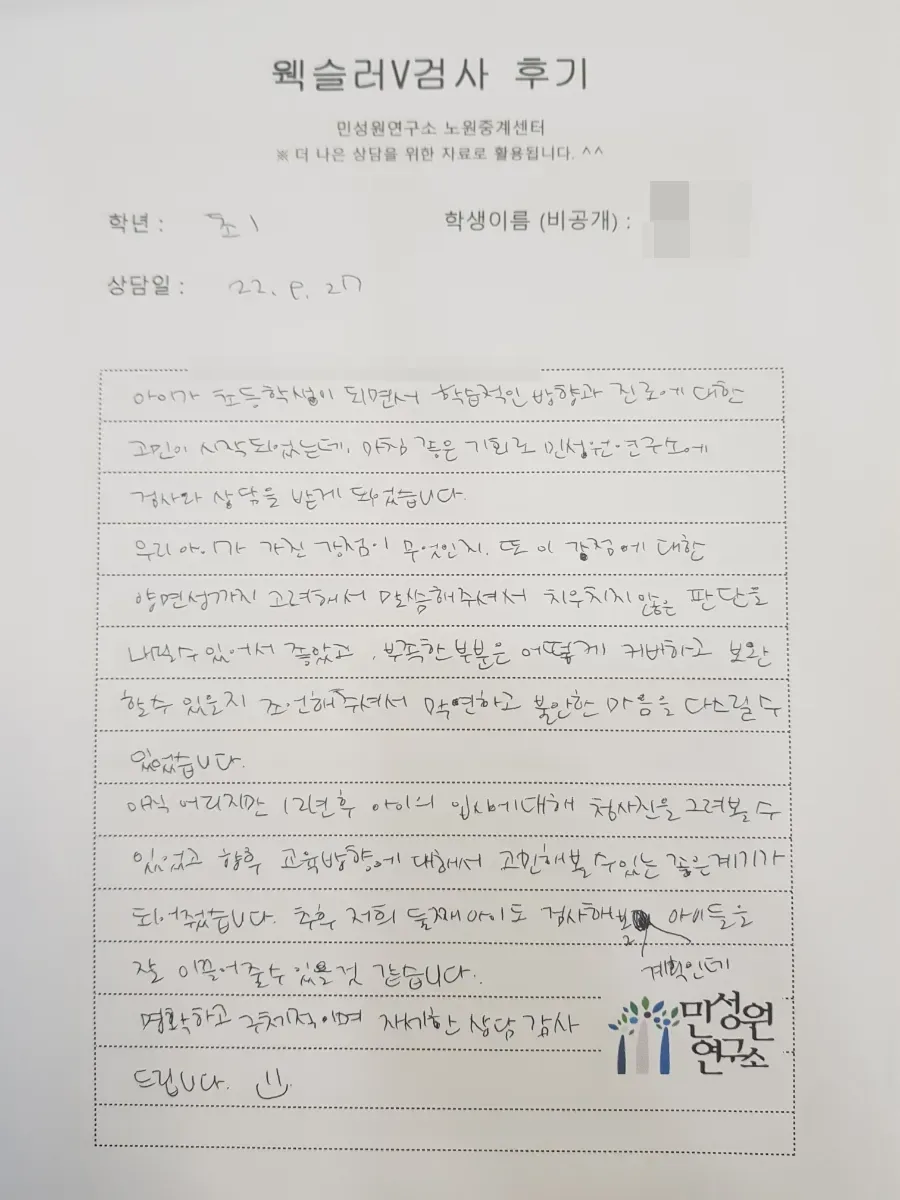 웩슬러V검사 후기
민성원연구소 노원중계센터
※ 더 나은 상담을 위한 자료로 활용됩니다. ^^
학년 : 초1
학생이름 (비공개) :
상담일 : 22. 9. 27
아이가 초등학생이 되면서 학습적인 방향과 진로에 대한
고민이 시작되었는데, 마침 좋은 기회로 민성원연구소에
검사와 상담을 받게 되었습니다.
우리 아이가 가진 강점이 무엇인지, 또 이 강점에 대한
양면성까지 고려해서 말씀해주셔서 치우치지 않은 판단을
내릴수 있어서 좋았고, 부족한 부분은 어떻게 커버하고 보완
할수 있을지 조언해주셔서 막연하고 불안한 마음을 다스릴 수
있었습니다.
아직 어리지만 12년후 아이의 입시에대해 청사진을 그려볼 수
있었고 향후 교육방향에 대해서 고민해볼 수있는 좋은계기가
되어줬습니다. 추후 저희 둘째아이도 검사해볼 아이들을
계획인데
잘 이끌어줄수 있을것 같습니다.
명확하고 구체적이며 자세한 상담 감사
드립니다.
민성원
연구소